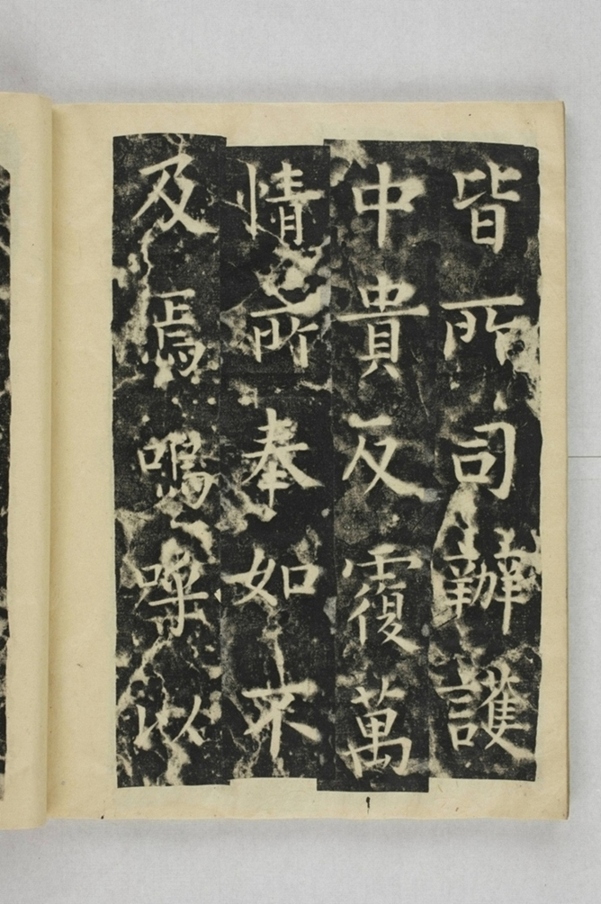 皆所司辦護
中貴反覆萬
情所奉如不
及焉嗚噪以